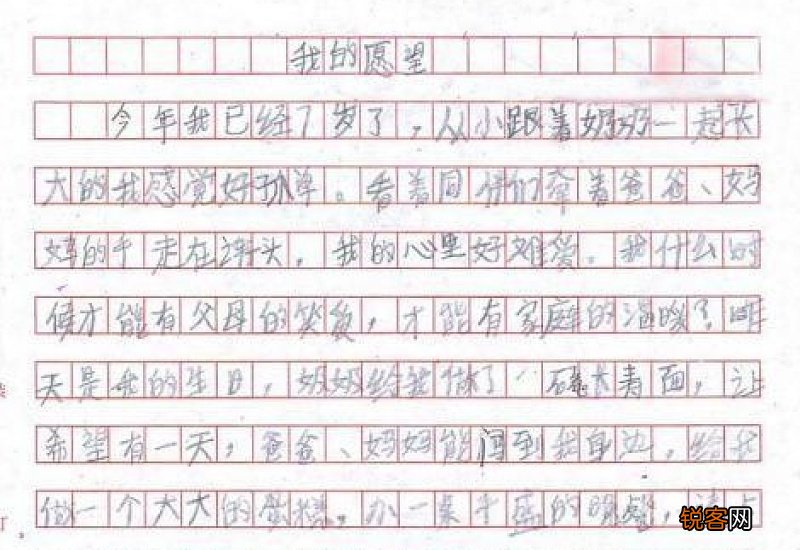 我的愿望
今年我已经7岁了，从小跟着奶奶一起长
大的我感觉好孤单。看着同伴们牵着爸爸、妈
妈的手走在街头，我的心里好难受。我什么时
候才能有父母的笑貌，才能有家庭的温暖？昨
天是我的生日，奶奶给我做了一碗长寿面，
希望有一天，爸爸、妈妈能回到我身边，给我
做一个大大的蛋糕。办一桌丰盛的晚餐，
锐客网